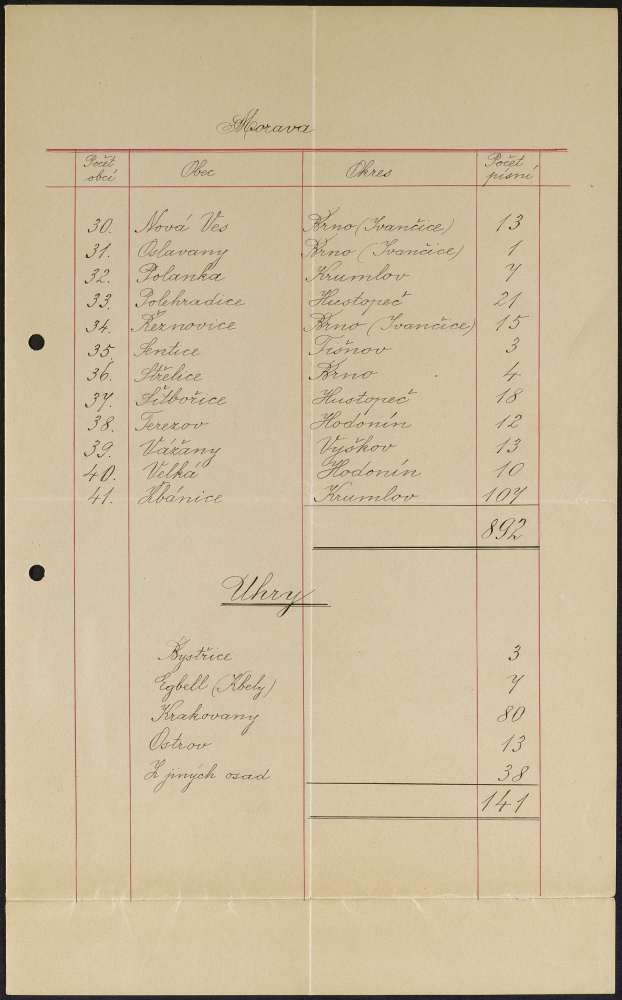 Morava
Počet obcí Obec Okres Počet písní
30. Nová Ves Brno (Ivančice) 13
31. Oslavany Brno (Ivančice) 1
32. Polanka Krumlov 7
33. Polehradice Hustopeč 21
34. Řeznovice Brno (Ivančice) 15
35. Sentice Tišnov 3
36. Střelice Brno 4
37. Šitbořice Hustopeč 18
38. Terezov Hodonín 12
39. Vážany Vyškov 13
40. Velká Hodonín 10
41. Zbánice Krumlov 107
892
Uhry
Bystřice 3
Egbell (Kbely) 7
Krakovany 80
Ostrov 13
Z jiných osad 38
141